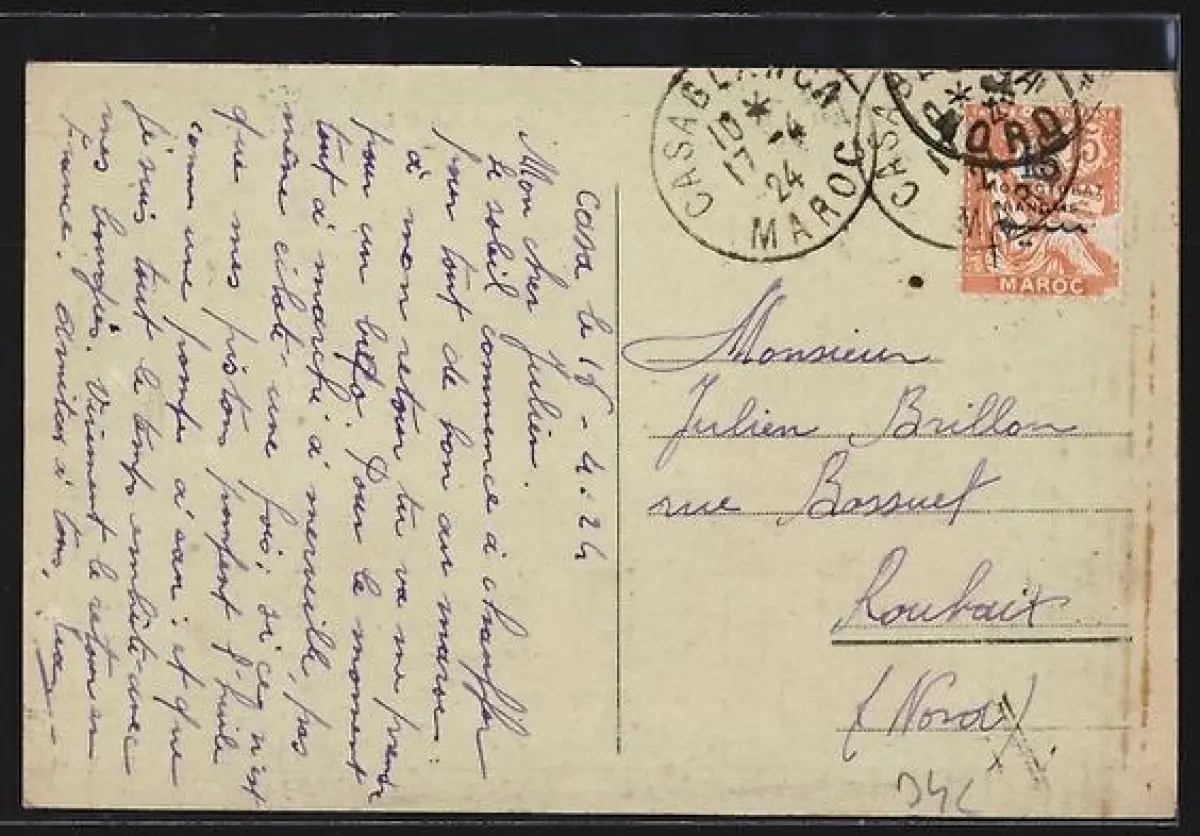 Casa le 15-4-24
Mon cher Julien.
le soleil commence à chauffer
pour tout de bon au maroc:
à mon retour tu va me prendre
pour un bico. Pour le moment
tout à marche à merveille, pas
même éclaté une fois; si ce n'est
que mes pistons pompent l'huile
comme une pompe à eau: et que
je suis tout le temps embêté avec
mes bougies. Vivement le retour en
France. amitiés à tous.
CASABLANCA
10 *
17 -4
24
MAROC
CASABLANCA
15
PROTECTORAT
FRANÇAIS
MAROC
Monsieur
Julien Brillon
rue Bossuet
Roubaix
(Nord)